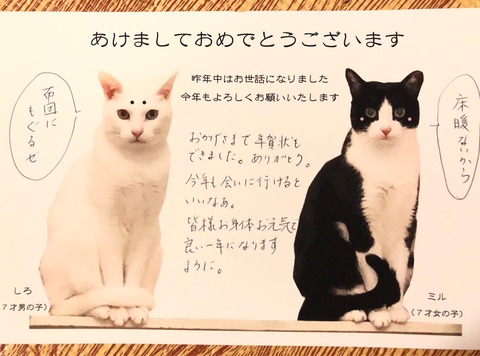 あけましておめでとうございます
昨年中はお世話になりました
今年もよろしくお願いいたします
布団に
もぐるぜ
床暖ないから
おかげさまで年賀状も
できました。ありがとう。
今年も会いに行けると
いいなあ。
皆様お身体お元気で
良い一年になります
ように。
しろ
(7才男の子)
ミル
(7才女の子)